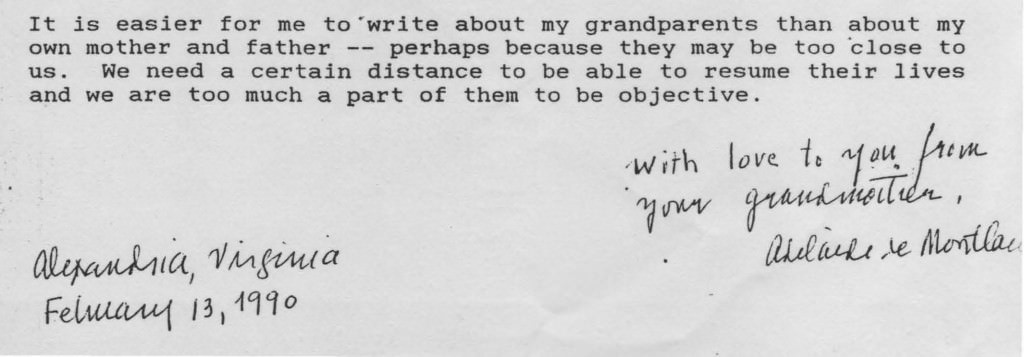 It is easier for me to write about my grandparents than about my
own mother and father -- perhaps because they may be too close to
us.  We need a certain distance to be able to resume their lives
and we are too much a part of them to be objective.
With love to you from
your grandmother,
Adelaide de Montlau
Alexandria, Virginia
February 13, 1990